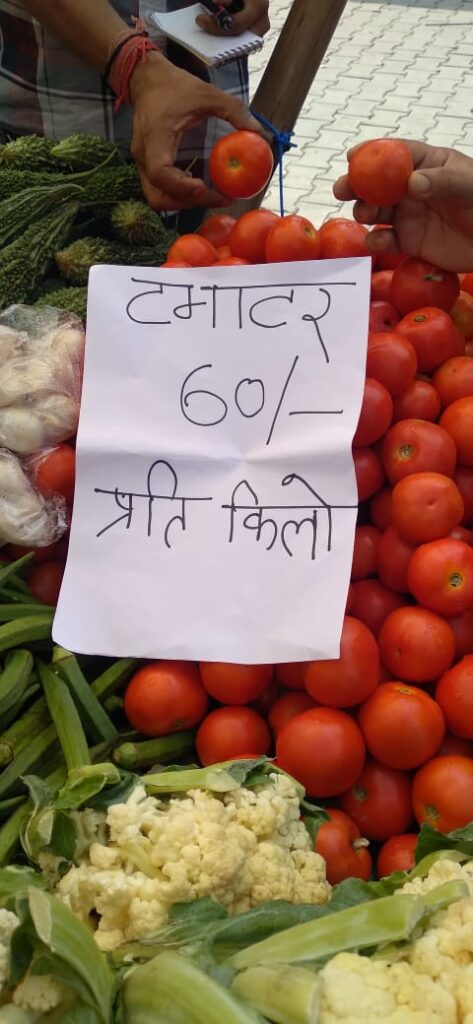 टमाटर
60/-
प्रति किलो